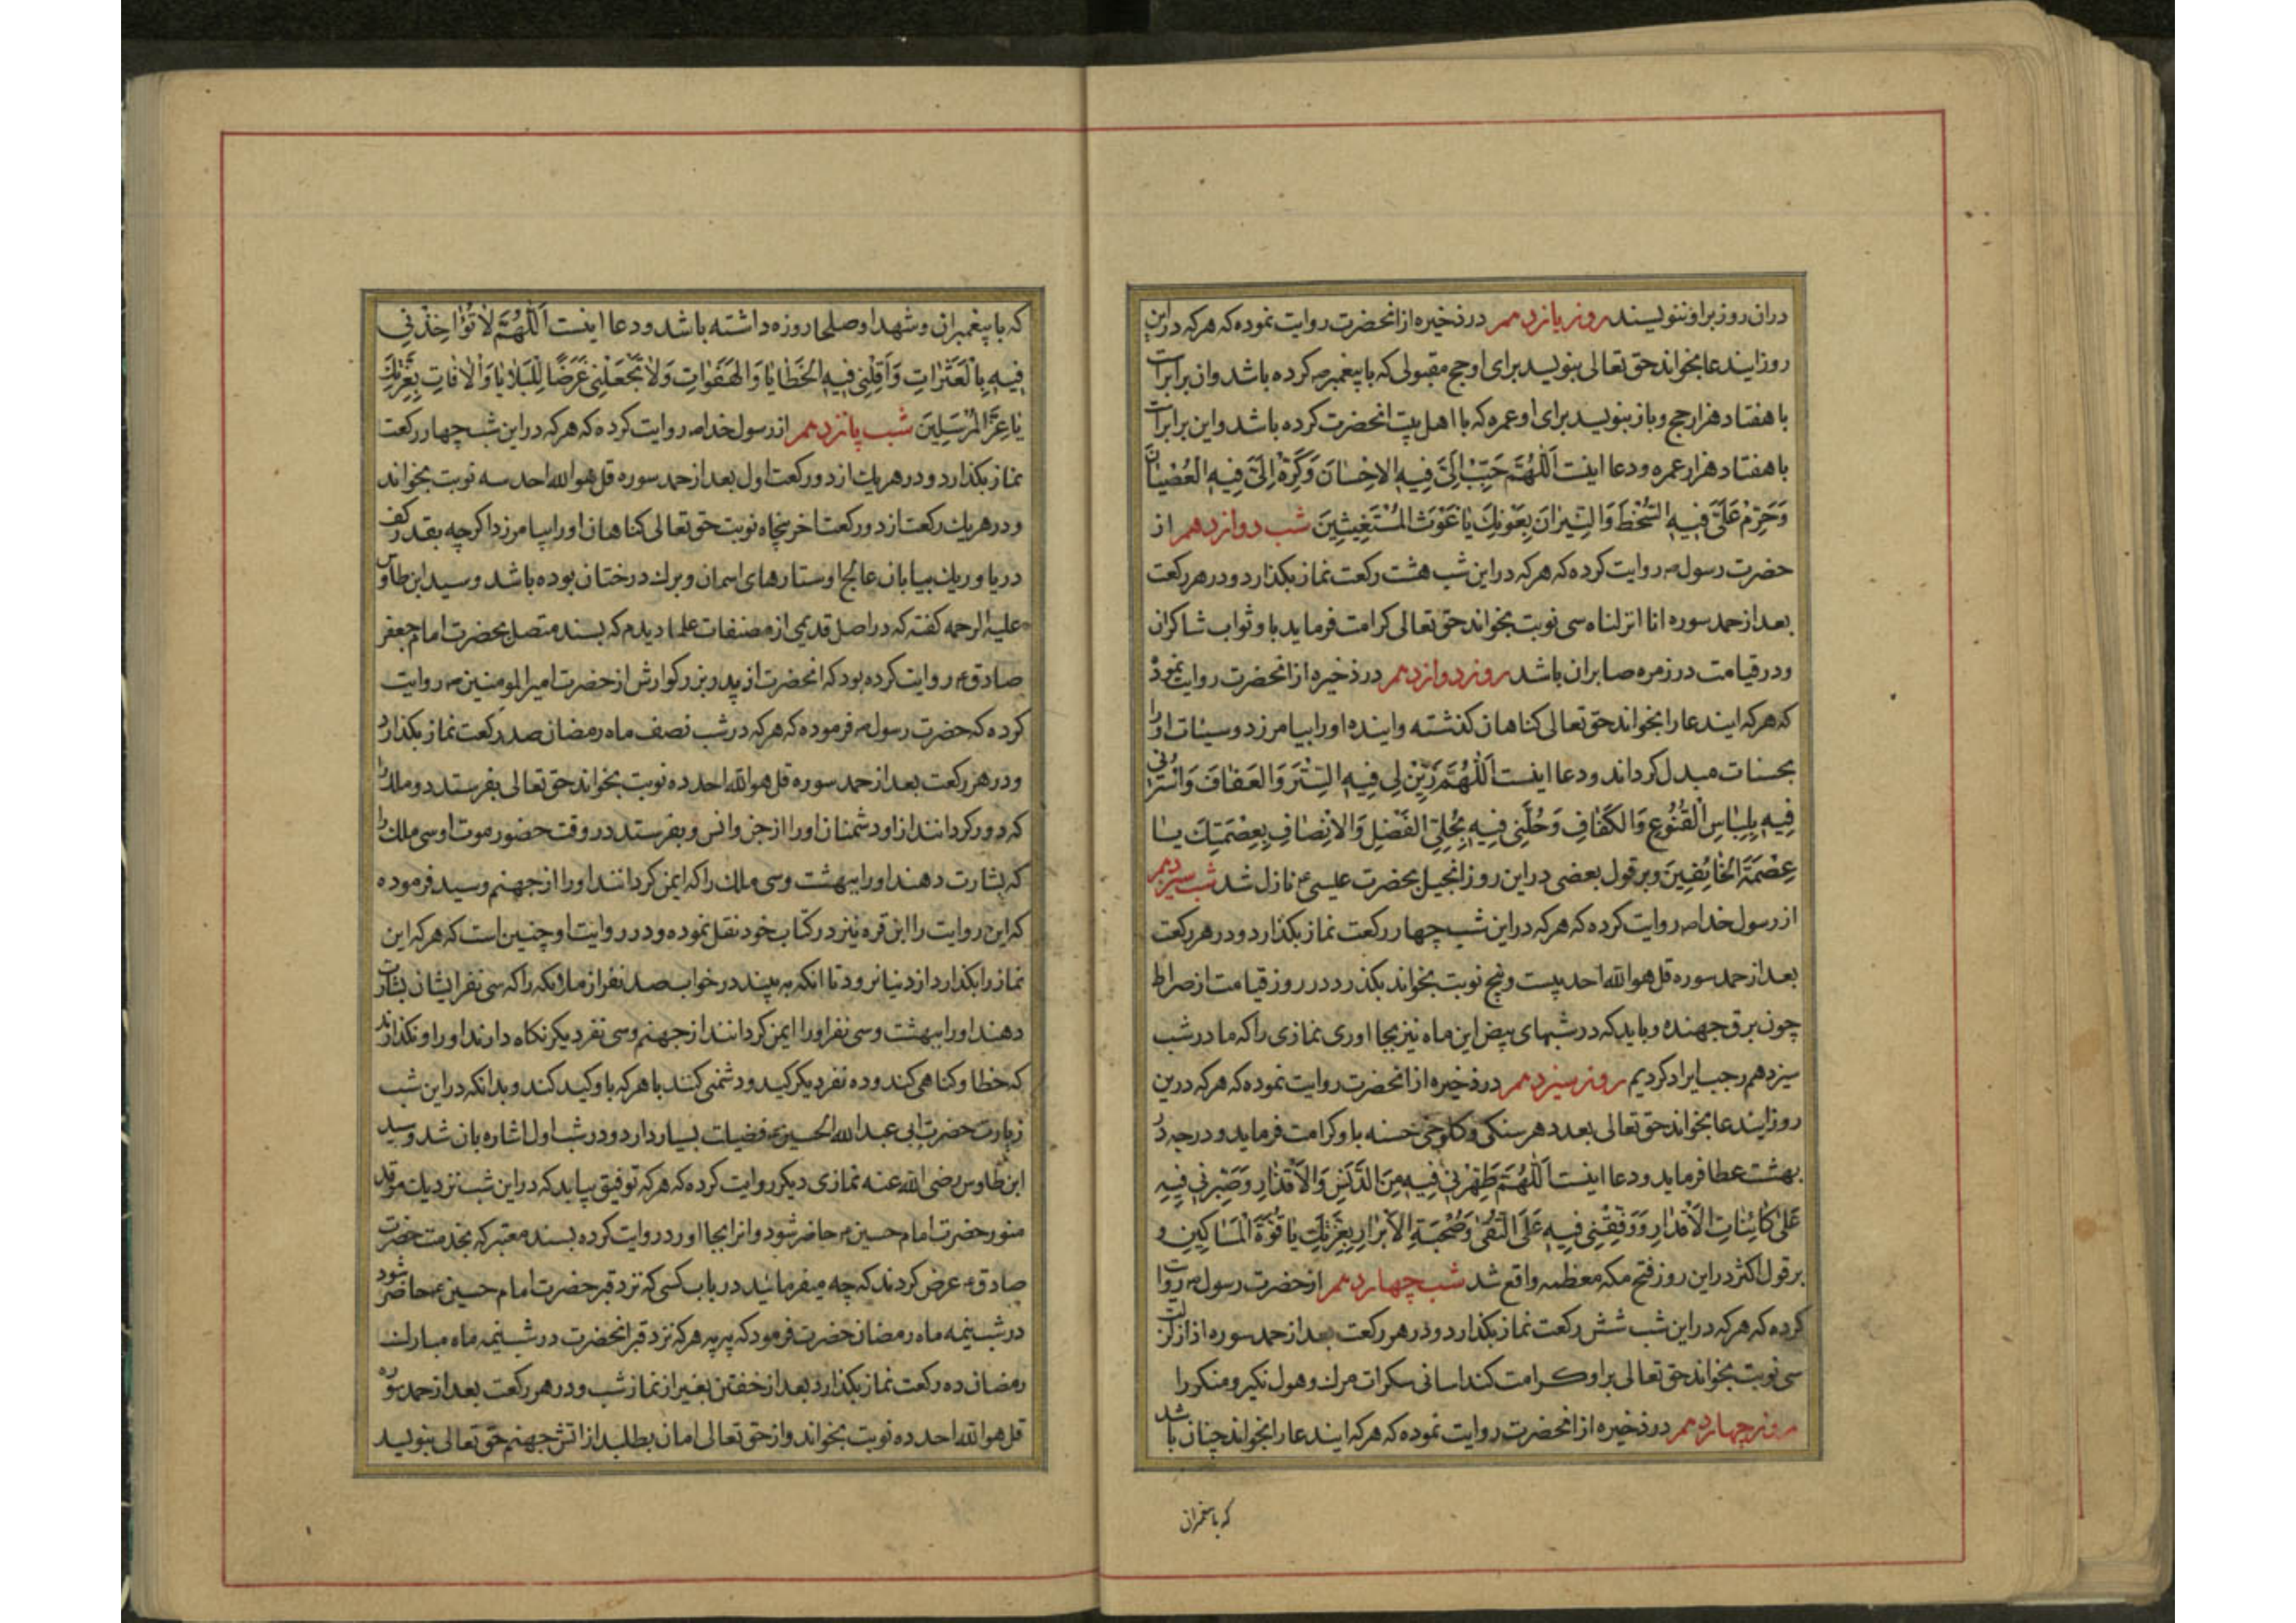 دران روز براو ننویسند روز یازدهم در ذخیره از انحضرت روایت نموده که هر که دراین
روز ایندعا بخواند حق تعالی بنویسد برای او حج مقبولی که با پیغمبر ص کرده باشد وان برابر است
با هفتاد هزار حج و باز بنویسد برای او عمره که با اهل بیت انحضرت کرده باشد واین برابر است
با هفتاد هزار عمره و دعا اینست اَللّهُمَّ حَبِّبْ اِلَیَّ فیهِ الاِحْسانَ وَکَرِّهْ اِلَیَّ فیهِ العِصْیانَ
وَحَرِّمْ عَلَیَّ فیهِ السَّخَطَ وَالنّیرانَ بِعَوْنِكَ یا غَوْثَ المُسْتَغیثینَ شب دوازدهم از
حضرت رسول ص روایت کرده که هر که دراین شب هشت رکعت نماز بکذارد ودر هر رکعت
بعد از حمد سوره انا انزلناه سی نوبت بخواند حق تعالی کرامت فرماید باو ثواب شاکران
ودر قیامت در زمره صابران باشد روز دوازدهم در ذخیره از انحضرت روایت نموده
که هر که ایندعا را بخواند حق تعالی کناهان کذشته واینده او را بیامرزد وسیئات او را
بحسنات مبدل کرداند ودعا اینست اَللّهُمَّ زَیِّنْ لی فیهِ السِّتْرَ وَالعَفافَ وَاسْتُرْنی
فیهِ بِلِباسِ الْقُنُوعِ وَالکَفافِ وَحَلِّنی فیهِ بِحُلِیِّ الفَضْلِ وَالاِنْصافِ بِعِصْمَتِكَ یا
عِصْمَةَ الخائِفینَ وبر قول بعضی دراین روز انجیل بحضرت عیسی ع نازل شد شب سیزدهم
از رسول خدا ص روایت کرده که هر که دراین شب چهار رکعت نماز بکذارد ودر هر رکعت
بعد از حمد سوره قل هو الله احد بیست وپنج نوبت بخواند بکذرد در روز قیامت از صراط
چون برق جهنده وباید که در شبهای بیض این ماه نیز بجا اوری نمازی را که ما در شب
سیزدهم رجب ایراد کردیم روز سیزدهم در ذخیره از انحضرت روایت نموده که هر که درین
روز ایندعا بخواند حق تعالی بعدد هر سنکی وکلوخی حسنه باو کرامت فرماید ودرجه در
بهشت عطا فرماید ودعا اینست اَللّهُمَّ طَهِّرْنی فیهِ مِنَ الدَّنَسِ وَالاَقْذارِ وَصَبِّرْنی فیهِ
عَلی کائِناتِ الاَقْدارِ وَوَفِّقْنی فیهِ عَلَی التُّقی وَصُحْبَةِ الاَبْرارِ بِعِزَّتِكَ یا قُوَّةَ الْمَساکینِ و
بر قول اکثر دراین روز فتح مکه معظمه واقع شد شب چهاردهم از حضرت رسول ص روایت
کرده که هر که دراین شب شش رکعت نماز بکذارد ودر هر رکعت بعد از حمد سوره اذا زلزلت
سی نوبت بخواند حق تعالی براو کرامت کند اسانی سکرات مرك وهول نکیر ومنکر را
روز چهاردهم در ذخیره از انحضرت روایت نموده که هر که ایندعا را بخواند چنان باشد
که با پیغمبران
که با پیغمبران وشهدا وصلحا روزه داشته باشد ودعا اینست اَللّهُمَّ لا تُؤاخِذْنی
فیهِ بِالْعَثَراتِ وَاَقِلْنی فیهِ الخَطایا وَالهَفَواتِ وَلا تَجْعَلْنی غَرَضًا لِلْبَلایا وَالْافاتِ بِعِزَّتِكَ
یا عِزَّ المُرْسَلینَ شب پانزدهم از رسول خدا ص روایت کرده که هر که دراین شب چهار رکعت
نماز بکذارد ودر هریك از دو رکعت اول بعد از حمد سوره قل هو الله احد سه نوبت بخواند
ودر هریك رکعت از دو رکعت اخر پنجاه نوبت حق تعالی کناهان او را بیامرزد اکرچه بقدر کف
دریا وریك بیابان عالج وستارهای اسمان وبرك درختان بوده باشد وسید ابن طاوس
علیه الرحمه کفته که در اصل قدیمی از مصنفات علما دیدم که بسند متصل بحضرت امام جعفر
صادق ع روایت کرده بود که انحضرت از پدر بزرکوارش از حضرت امیرالمومنین ع روایت
کرده که حضرت رسول ص فرموده که هر که در شب نصف ماه رمضان صد رکعت نماز بکذارد
ودر هر رکعت بعد از حمد سوره قل هو الله احد ده نوبت بخواند حق تعالی بفرستد دو ملك را
که دور کردانند از او دشمنان او را از جن وانس وبفرستد در وقت حضور موت او سی ملك را
که بشارت دهند او را ببهشت وسی ملك را که ایمن کردانند او را از جهنم وسید فرموده
که این روایت را ابن قره نیز در کتاب خود نقل نموده ودر روایت او چنین است که هر که این
نماز را بکذارد از دنیا نرود تا انکه به بیند در خواب صد نفر از ملائکه را که سی نفر ایشان بشارت
دهند او را ببهشت وسی نفر او را ایمن کردانند از جهنم وسی نفر دیکر نکاه دارند او را ونکذارند
که خطا وکناهی کند وده نفر دیکر کید ودشمنی کنند با هر که باو کید کند وبدانکه دراین شب
زیارت حضرت ابی عبد الله الحسین ع فضیلت بسیار دارد ودر شب اول اشاره بان شد وسید
ابن طاوس رضی الله عنه نمازی دیکر روایت کرده که هر که توفیق بیابد که دراین شب نزدیك مرقد
منور حضرت امام حسین ع حاضر شود وانرا بجا اورد روایت کرده بسند معتبر که بخدمت حضرت
صادق ع عرض کردند که چه میفرمائید در باب کسی که نزد قبر حضرت امام حسین ع حاضر شود
در شب نیمه ماه رمضان حضرت فرمود که په په هر که نزد قبر انحضرت در شب نیمه ماه مبارك
رمضان ده رکعت نماز بکذارد بعد از خفتن بغیر از نماز شب ودر هر رکعت بعد از حمد سوره
قل هو الله احد ده نوبت بخواند واز حق تعالی امان بطلبد از اتش جهنم حق تعالی بنویسد